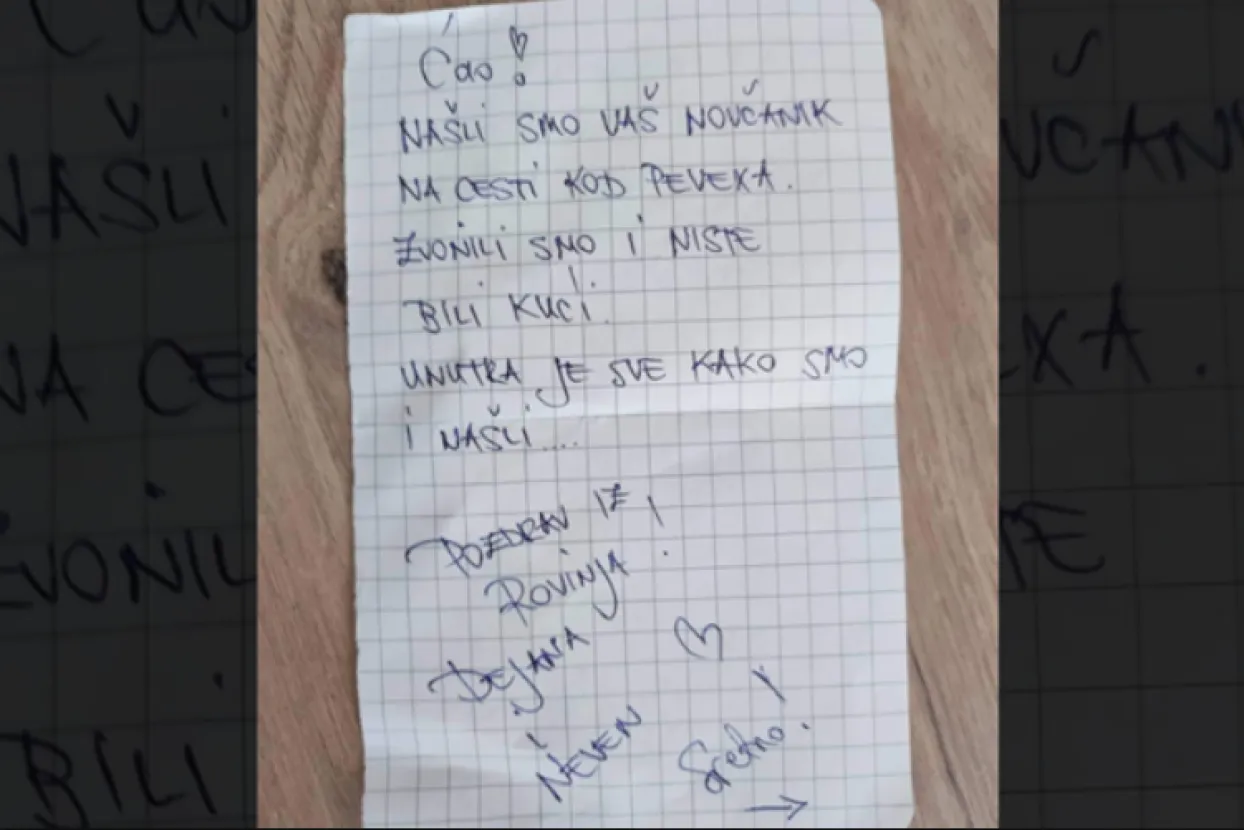 Ćao!
NAŠLI SMO VAŠ NOVČANIK
NA CESTI KOD PEVEXA.
ZVONILI SMO I NISTE
BILI KUĆI.
UNUTRA JE SVE KAKO SMO
I NAŠLI....
POZDRAV IZ
ROVINJA!
DEJANA
I
NEVEN
Sretno!
→